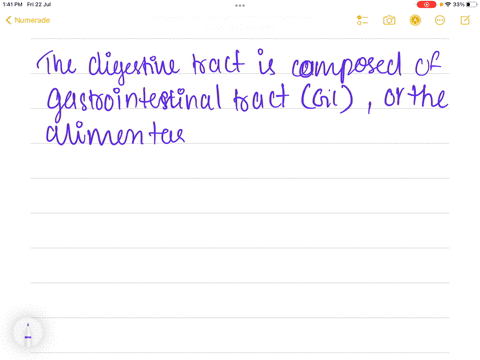 1:41 PM Fri 22 Jul
33%
Numerade
The digestive tract is composed of
gastrointestinal tract (GIL), or the
alimentar